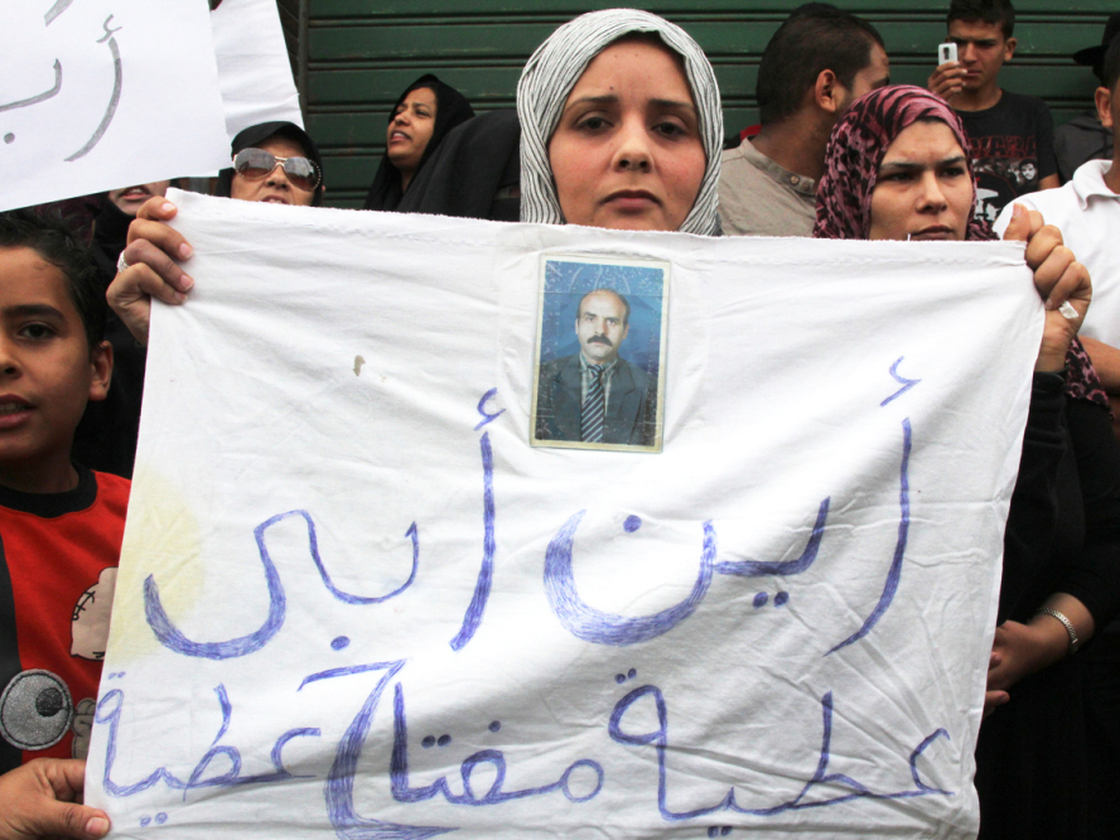 أين أبى
عطية مفتاح عطية